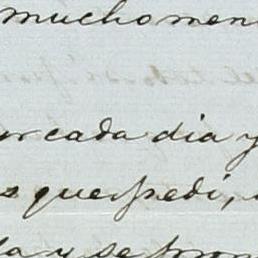 mucho men
or cada dia y
s que pedi,
la y se pron